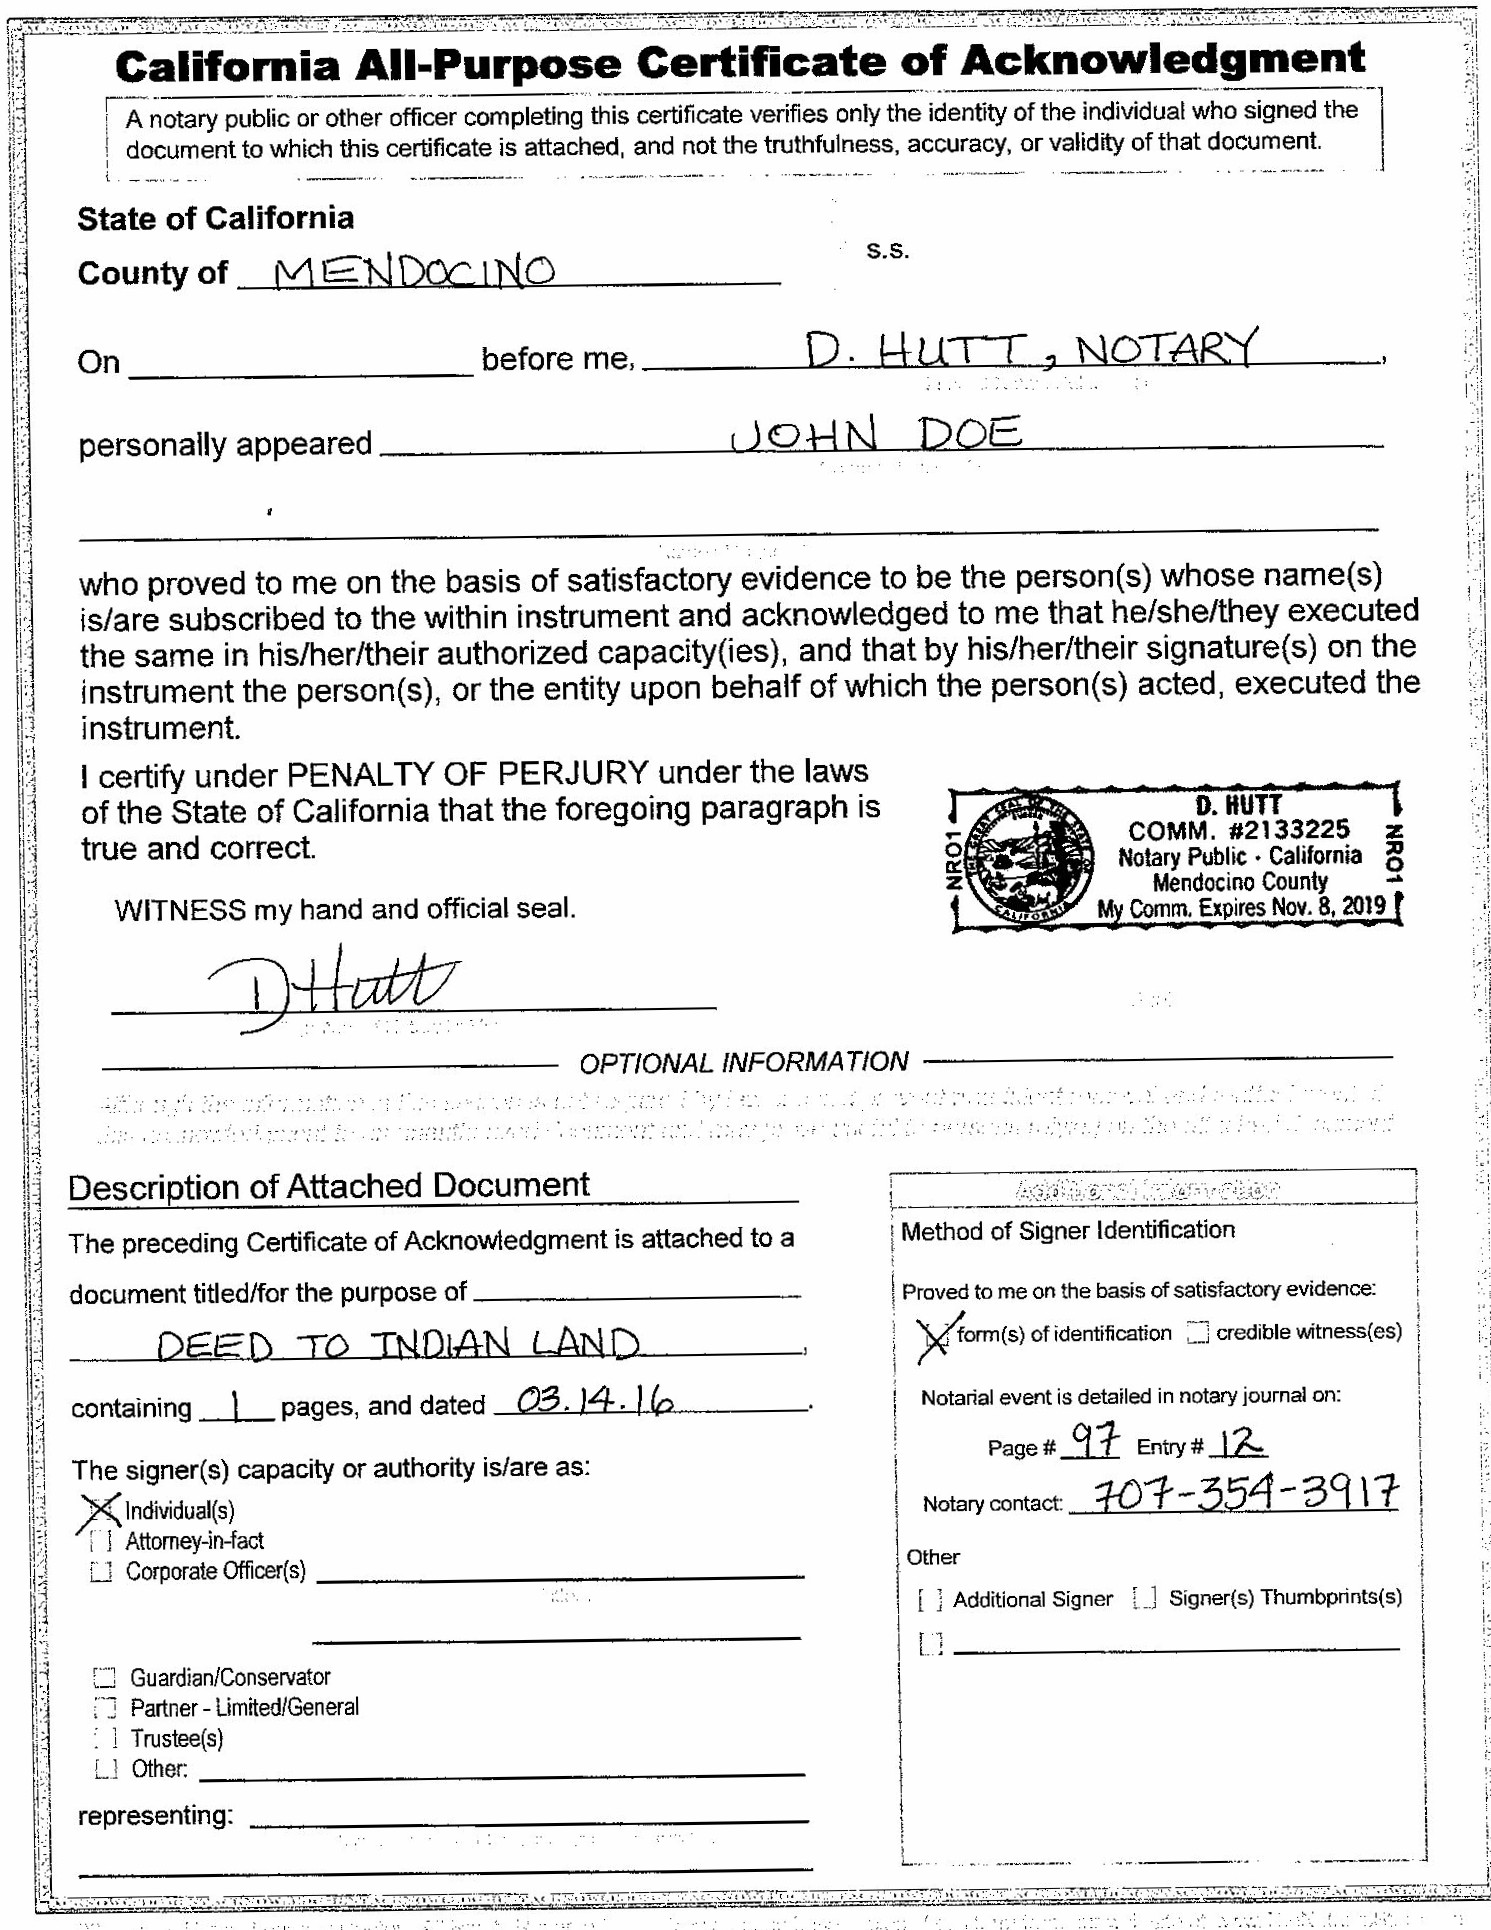 California All-Purpose Certificate of Acknowledgment
A notary public or other officer completing this certificate verifies only the identity of the individual who signed the
document to which this certificate is attached, and not the truthfulness, accuracy, or validity of that document.
State of California
s.s.
County of MENDOCINO
On before me, D. HUTT, NOTARY,
personally appeared JOHN DOE
who proved to me on the basis of satisfactory evidence to be the person(s) whose name(s)
is/are subscribed to the within instrument and acknowledged to me that he/she/they executed
the same in his/her/their authorized capacity(ies), and that by his/her/their signature(s) on the
instrument the person(s), or the entity upon behalf of which the person(s) acted, executed the
instrument.
I certify under PENALTY OF PERJURY under the laws
of the State of California that the foregoing paragraph is
true and correct.
WITNESS my hand and official seal.
D Hutt
NRO1
THE GREAT SEAL OF THE STATE OF CALIFORNIA
D. HUTT
COMM. #2133225
Notary Public · California
Mendocino County
My Comm. Expires Nov. 8, 2019
NRO1
OPTIONAL INFORMATION
Description of Attached Document
The preceding Certificate of Acknowledgment is attached to a
document titled/for the purpose of
DEED TO INDIAN LAND,
containing 1 pages, and dated 03.14.16.
The signer(s) capacity or authority is/are as:
Individual(s)
Attorney-in-fact
Corporate Officer(s)
Guardian/Conservator
Partner - Limited/General
Trustee(s)
Other:
representing:
Additional Information
Method of Signer Identification
Proved to me on the basis of satisfactory evidence:
form(s) of identification credible witness(es)
Notarial event is detailed in notary journal on:
Page # 97 Entry # 12
Notary contact: 707-354-3917
Other
Additional Signer Signer(s) Thumbprints(s)